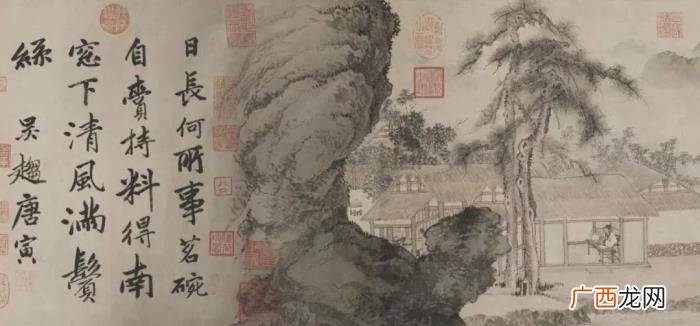 日長何所事茗碗
自賫持料得南
窓下清風滿鬢
絲 吳趨唐寅
广西龙网